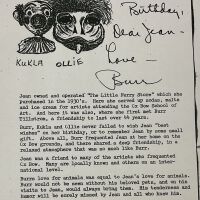 Birthday,
Dear Jean-
Love -
Burr
KUKLA OLLIE
Jean owned and operated "The Little Ferry Store" which she
purchased in the 1930's. Here she served up sodas, malts
and ice cream for artists attending the Ox Bow School of
Art. And here it was also, where she first met Burr
Tillstrom, a friendship to last over 45 years.
Burr, Kukla and Ollie never failed to wish Jean "best
wishes" on her birthday, or to remember Jean by some small
gift. Above all, Burr frequented Jean at her home on the
Ox Bow grounds, and there shared a deep friendship, in a
relaxed atmosphere that was so much like Burr.
Jean was a friend to many of the artists who frequented
Ox Bow. Many are locally known and others on an inter-
national level.
Burrs love for animals was equal to Jean's love for animals.
Burr would not be seen without his beloved pets, and on his
visits to Jean, would always bring them. His tenderness and
humor will be sorely missed by Jean and all who knew him.